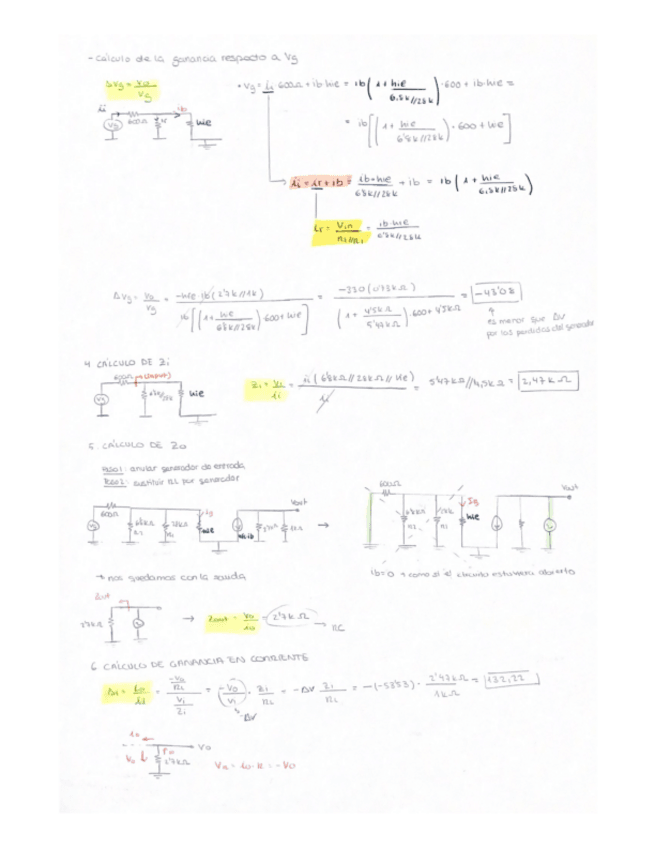 - cálculo de la ganancia respecto a Vg
ΔVg = Vo / Vg
• Vg = ii 600Ω + ib hie = ib (1 + hie / 6,8k//28k) · 600 + ib·hie =
= ib [(1 + hie / 6'8k//28k) · 600 + hie]
ii
ib
600Ω
Vg
hie
ii = ir + ib = ib·hie / 6'8k//28k + ib = ib (1 + hie / 6,8k//28k)
ir = Vin / R1//R2 = ib·hie / 6'8k//28k
ΔVg = Vo / Vg = -hfe·ib (2'7k//1k) / ib [(1 + hie / 6'8k//28k)·600 + hie] = -330 (0'73kΩ) / (1 + 4'5kΩ / 5'47kΩ)·600 + 4'5kΩ = -43'08
es menor que ΔV
por las perdidas del generador
4 CÁLCULO DE Zi
600Ω
(INPUT)
Vg
hie
Zi = Vi / ii = ii (6'8kΩ//28kΩ//hie) / ii = 5'47kΩ//4,5kΩ = 2,47 kΩ
5. CÁLCULO DE Zo
PASO1: anular generador de entrada
PASO2: sustituir RL por generador
600Ω
Vg
hie
Vout
→
600Ω
hie
Vout
→ nos quedamos con la salida
ib=0 → como si el circuito estuviera abierto
Zout
2'7kΩ
→ Zout = Vo / io = 2'7k Ω → RC
6 CÁLCULO DE GANANCIA EN CORRIENTE
Δi = io / ii = -Vo / RL / Vi / Zi = (-Vo / Vi) · Zi / RL = -ΔV Zi / RL = -(-53'53) · 2'47kΩ / 1kΩ = 132,22
-ΔV
io
Vo
2'7kΩ
VR = io·R = -Vo